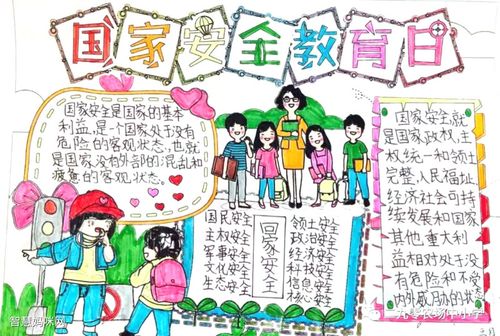 国家安全教育日
国家安全是国家的基本
利益,是一个国家处于没有
危险的客观状态,也就
是国家没有外部的混乱和
疲惫的客观状态。
国民安全
主权安全
军事安全
文化安全
生态安全
国家安全
领土安全
政治安全
经济安全
科技安全
信息安全
核心安全
国家安全,就
是国家政权,主
权统一和领土
完整,人民福祉,
经济社会可持
续发展和国家
其他重大利
益相对处于没
有危险和不受
内外威胁的状态
智慧妈咪网